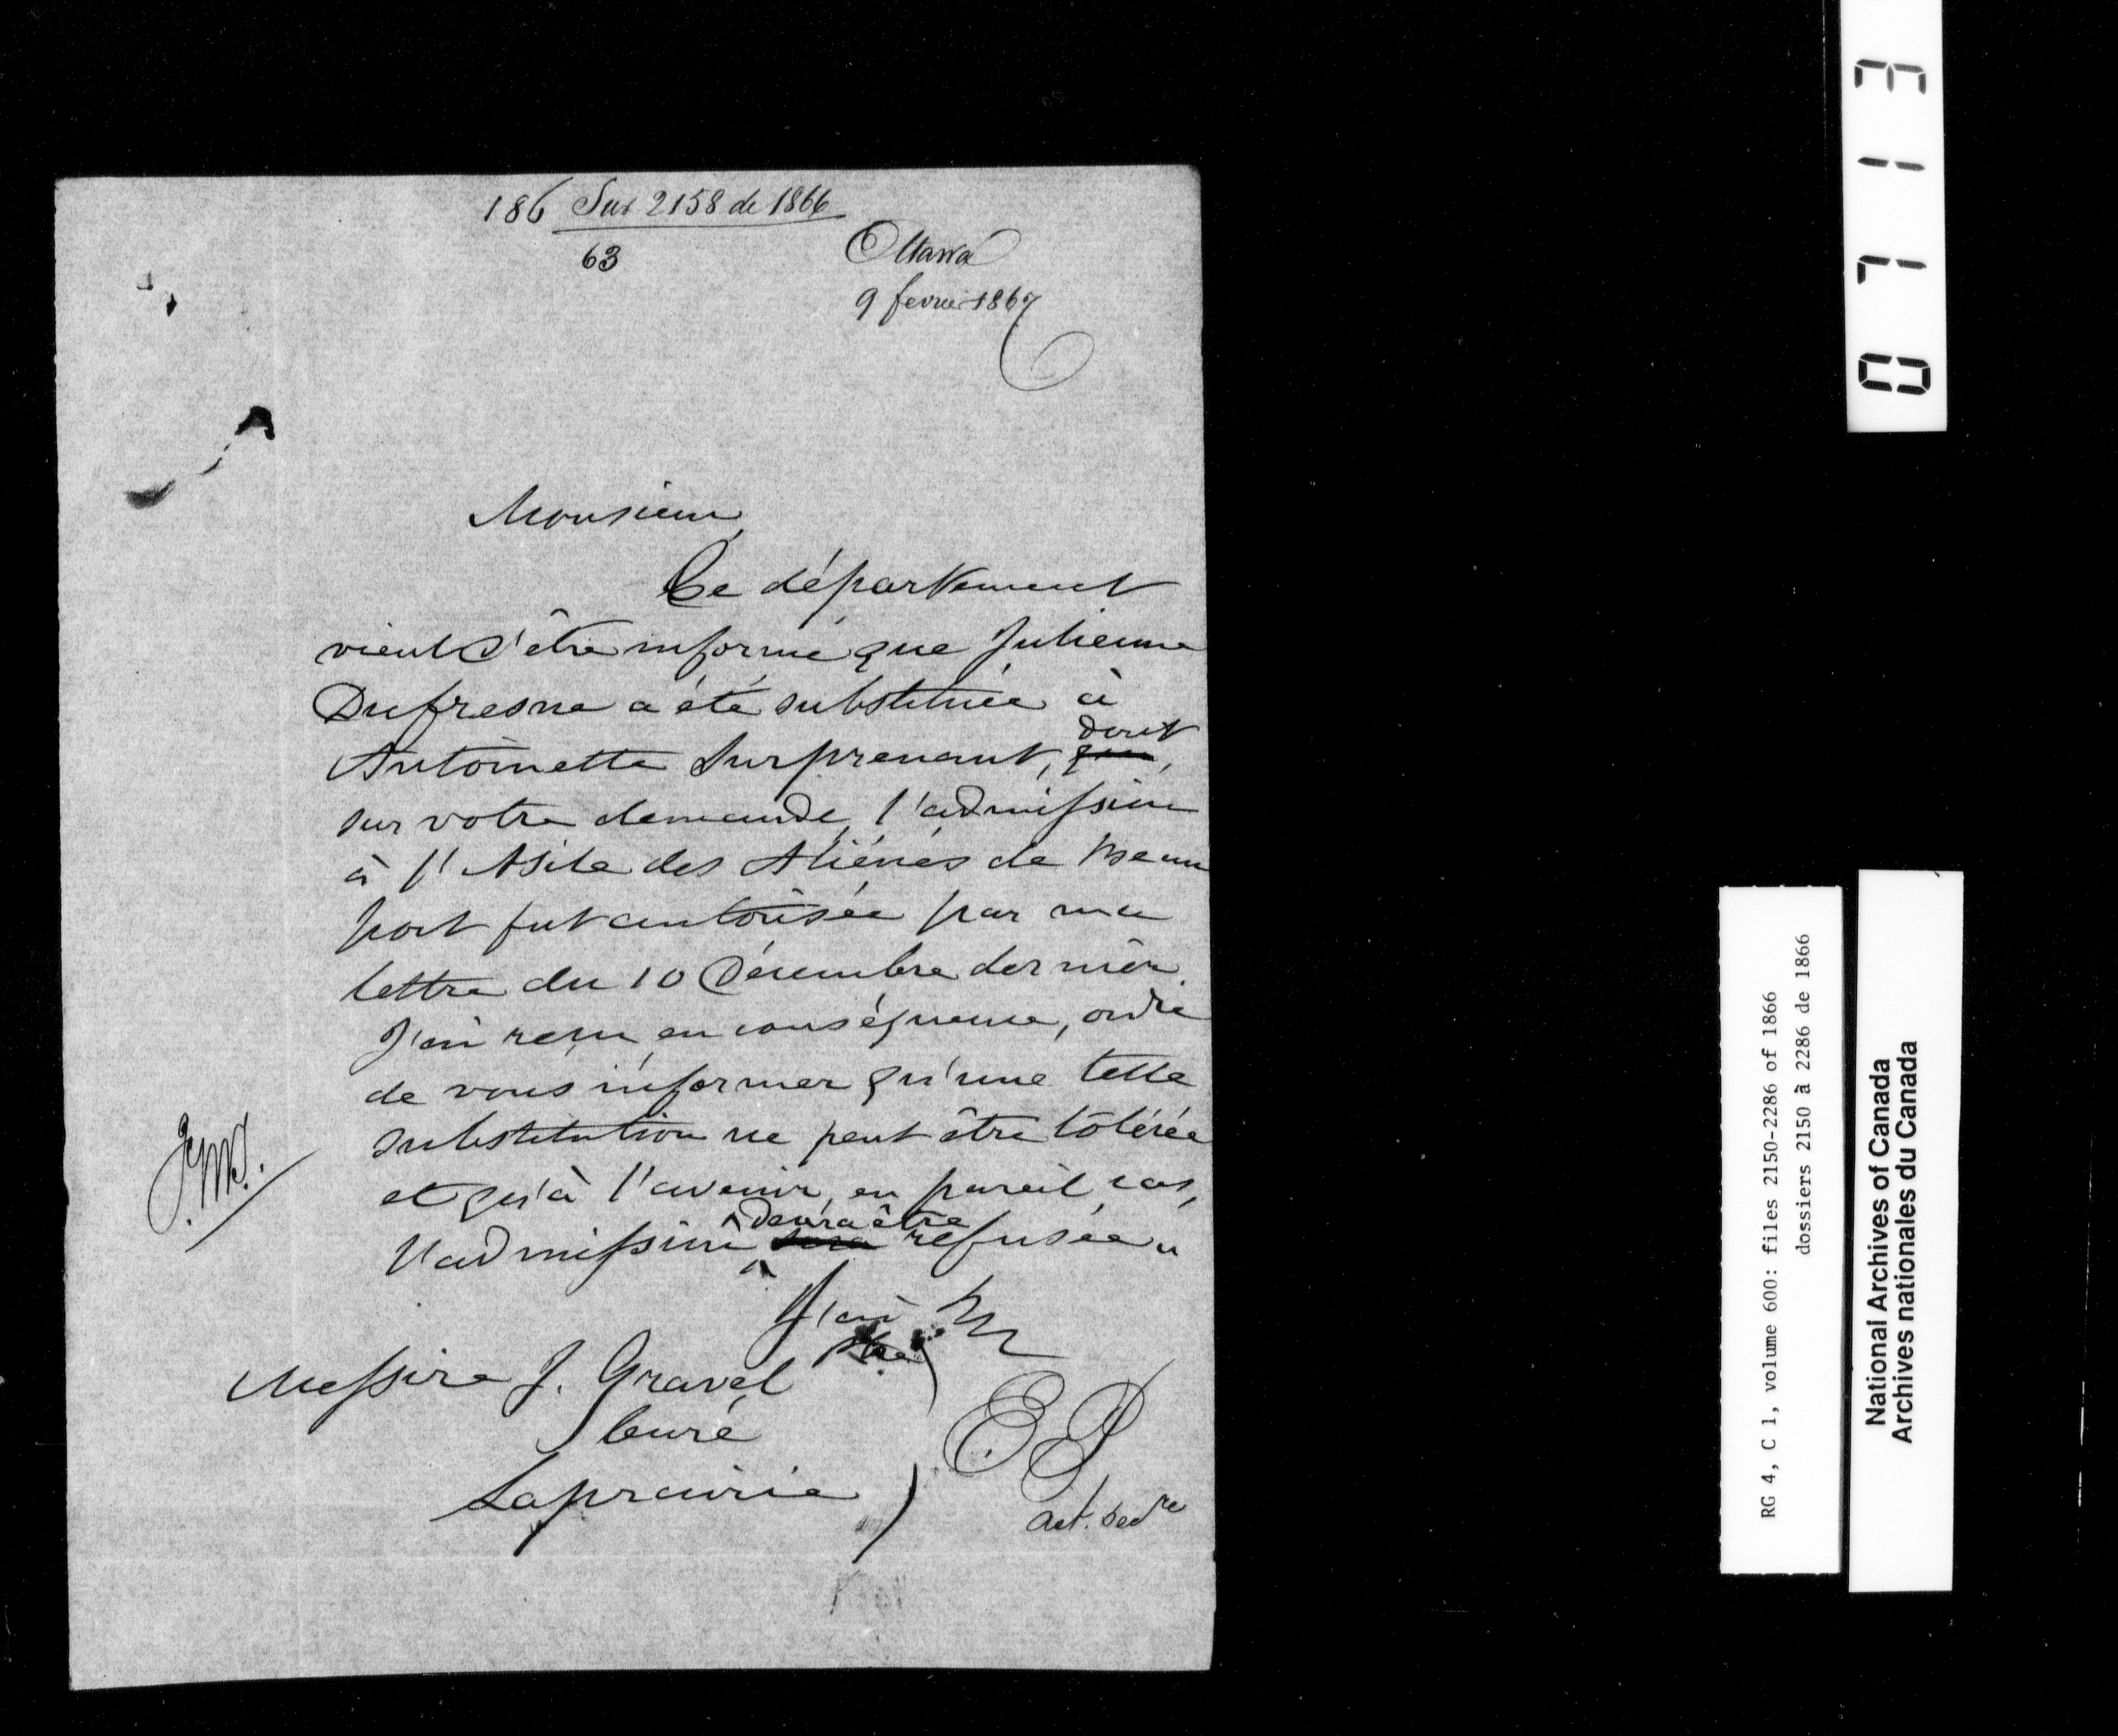 186 Sur 2158 de 1866
63
Ottawa
9 fevrier 1867
Monsieur,
Ce département
vient d'être informé que Julienne
Dufresne a été substituée à
dont
Antoinette Surprenant, qui,
sur votre demande, l'admission
à l'Asile des Aliénés de Beau
port fut autorisée par ma
lettre du 10 Décembre dernier.
J'ai reçu, en conséquence, ordre
de vous informer qu'une telle
substitution ne peut être tolérée
et qu'à l'avenir, en pareil cas,
devra être
l'admission sera refusée.
J'ai
Messire J. Gravel
Curé
Laprairie
E P
Act. Secre
0713
RG 4, C 1, volume 600: files 2150-2286 of 1866
dossiers 2150 à 2286 de 1866
National Archives of Canada
Archives nationales du Canada